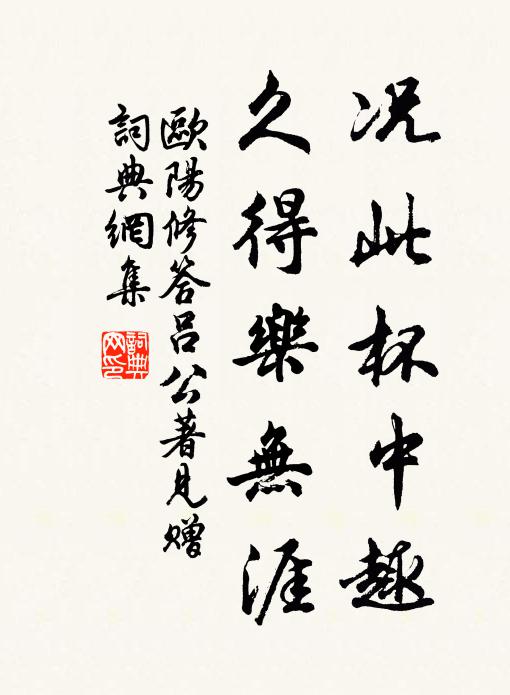 况此杯中趣
久得樂無涯
歐陽修答呂公著見贈
詞典網集
詞典網印